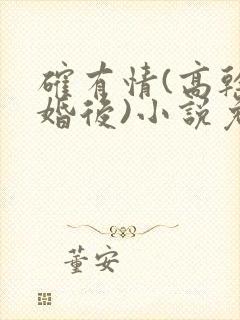 確有情(高幹
婚後)小說免
董安